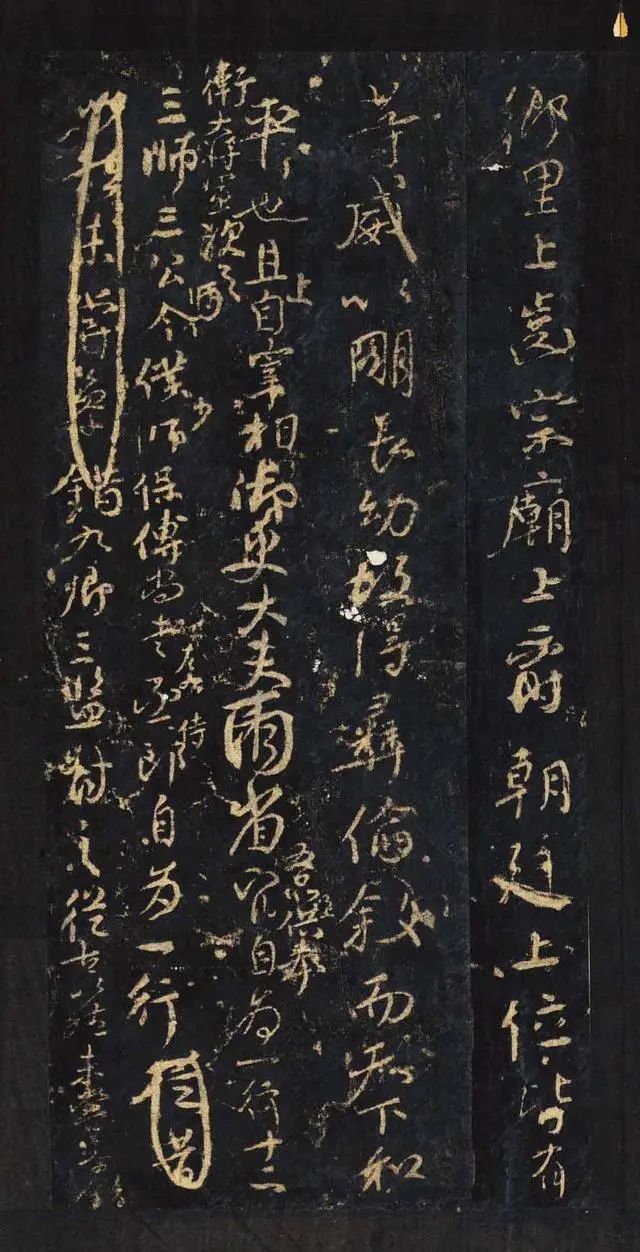 鄉里上齒宗廟上爵朝廷上位皆有
等威以明長幼故得彝倫敘而天下和
平也且上自宰相御史大夫兩省五品供奉官自為一行十二
衛大將軍次之
三師三公令僕少師保傅尚書左右丞侍郎自為一行
未嘗參錯九卿三監對之從古以然未嘗參錯